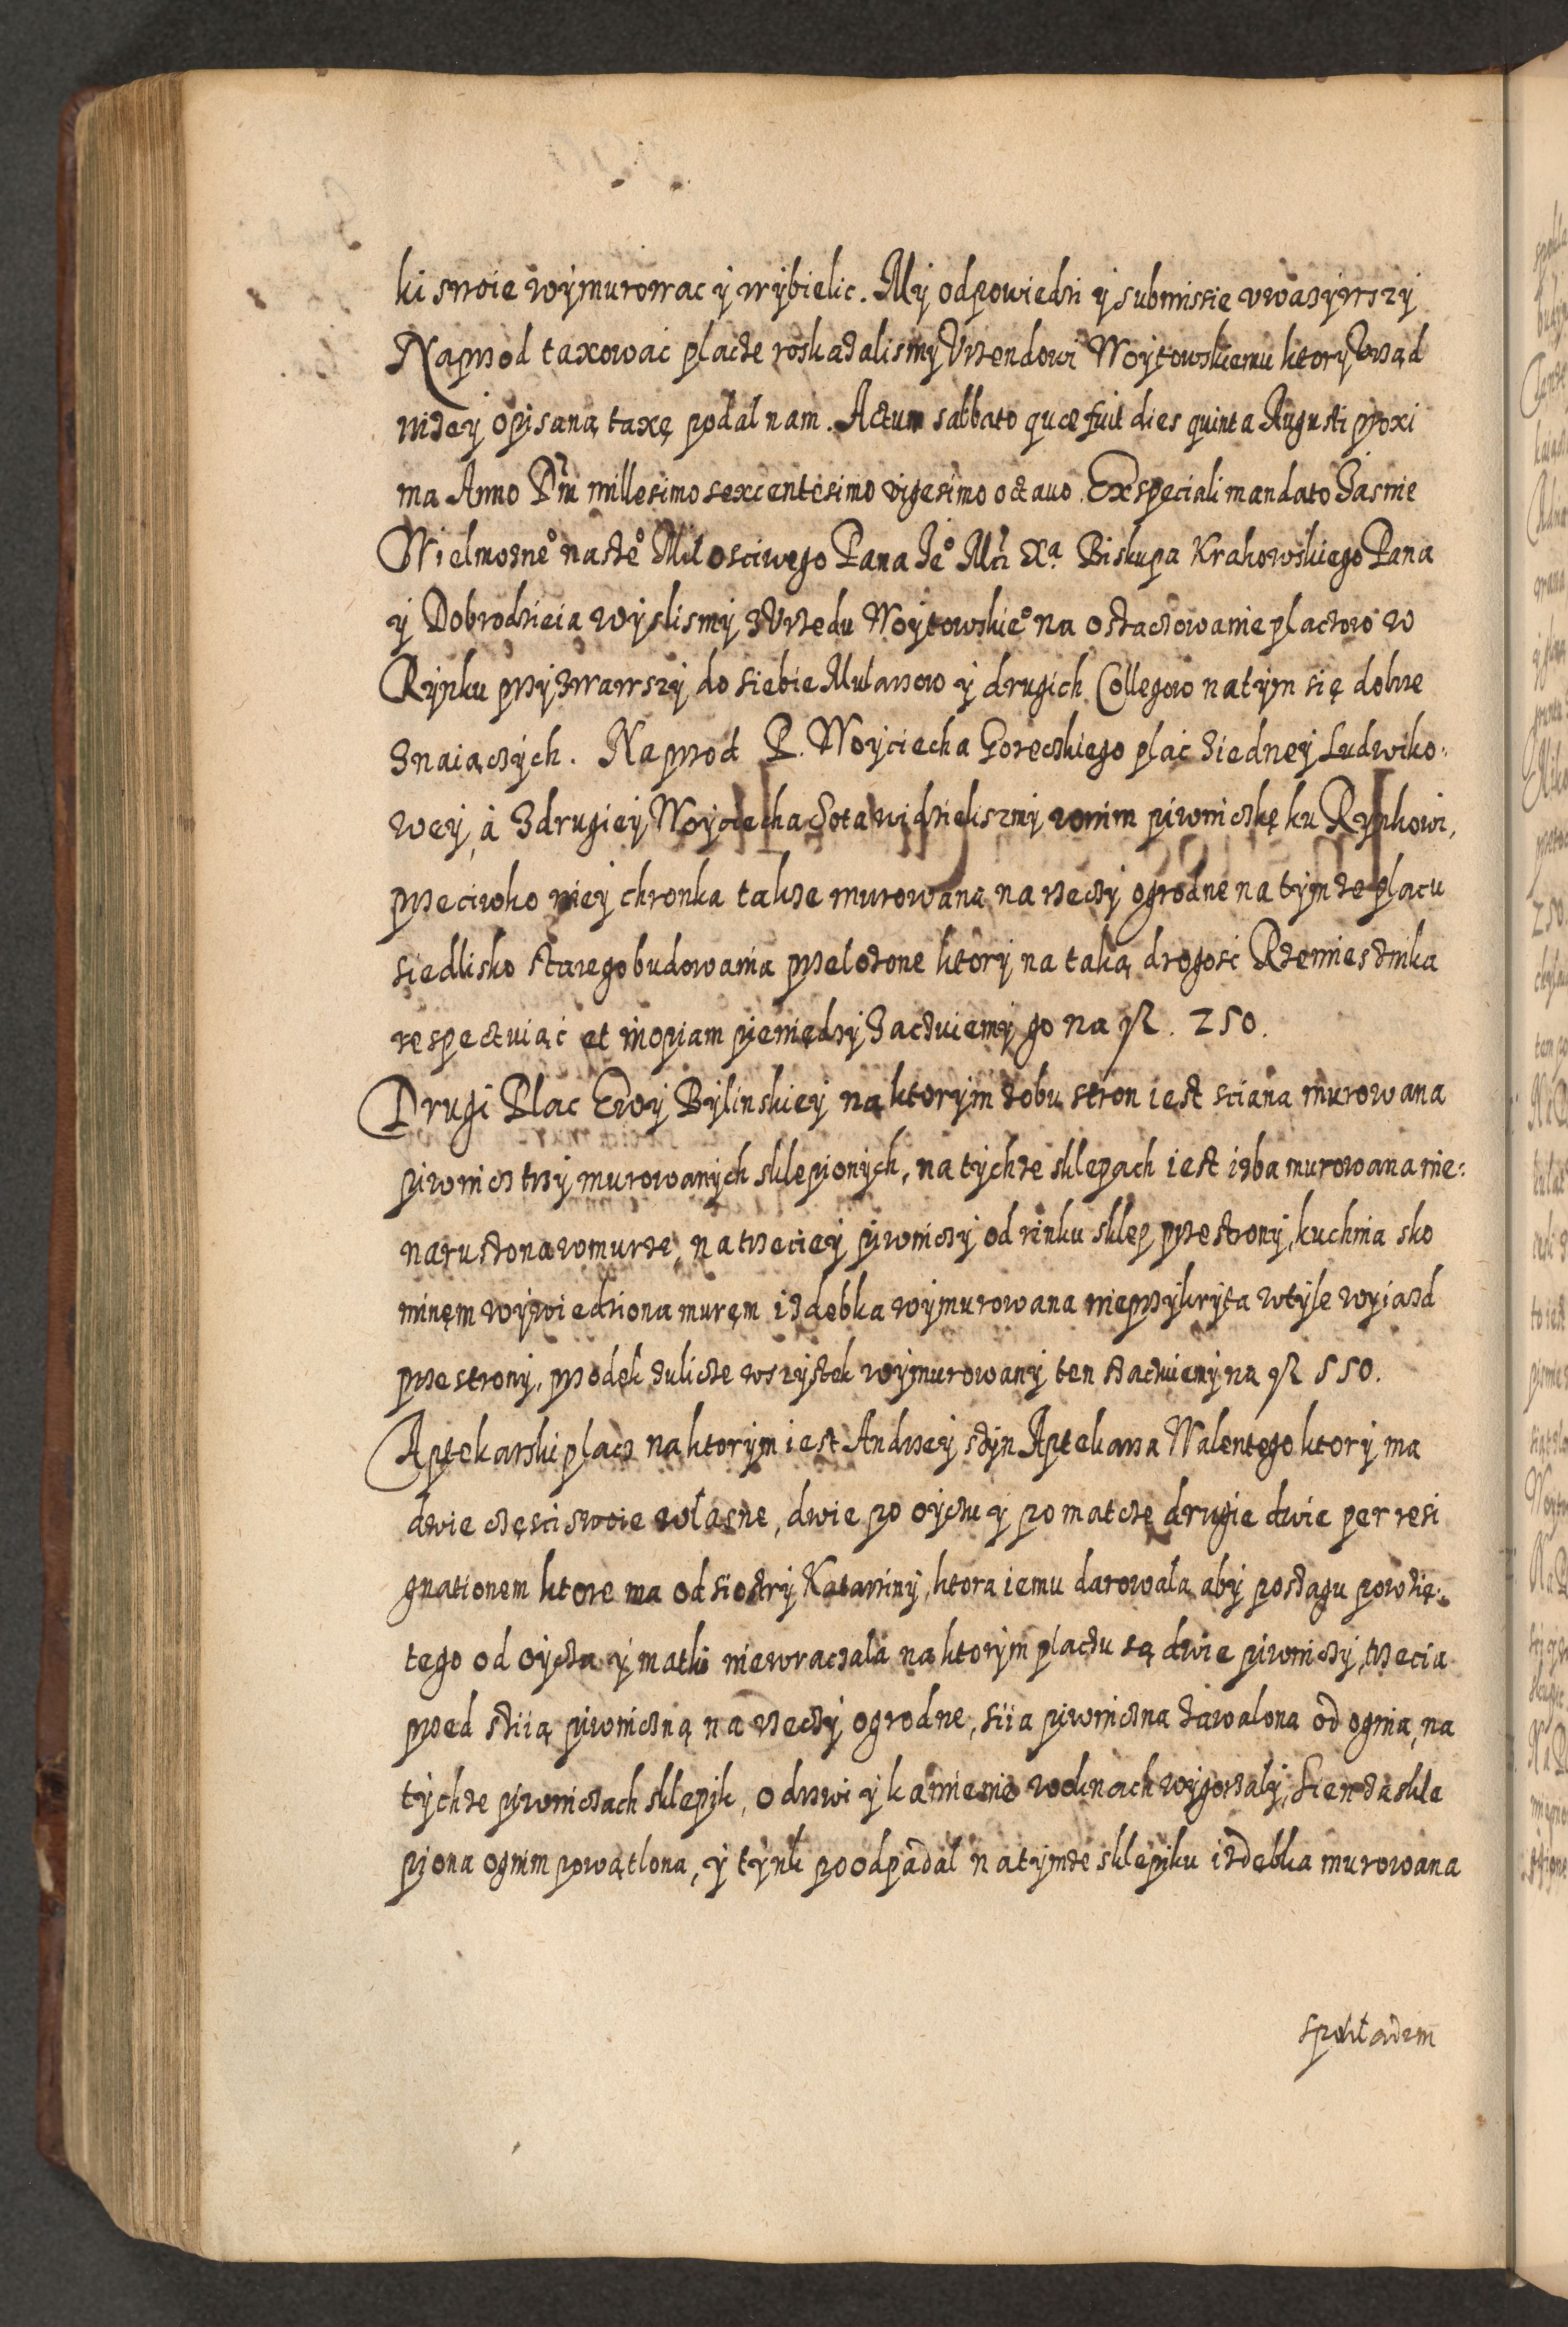 ki swoie wymurowac y wybielic. My odpowiedzi y submissie uwazywszy
Naprzod taxowac placze roskazalismy Urzendowi Woytowskiemu ktory Urząd
nizey opisaną taxę podal nam. Actum sabbato quae fuit dies quinta Augusti proxi
ma Anno Dni millesimo sexcentesimo vigesimo octavo. Ex speciali mandato Jasnie
Wielmozne° nasze° Milosciwego Pana Je° Mci Xa Biskupa Krakowskiego Pana
y Dobrodzieia wyslismy z Urzedu Woytowskie° na oszaczowanie placzow w
Rynku przyzwawszy do siebie Mularzow y drugich Collegow na tym się dobrze
znaiączych. Naprzod P. Woyciecha Goreczkiego plac z iedney Ludwiko-
wey, a z drugiey Woyciecha Szota widzieliszmy w nim piwniczkę ku Rynkowi,
przeciwko niey chronka takze murowana na rzeczy ogrodne na tymze placu
siedlisko starego budowania przelozone ktory na taką drogosc Rzemieslnika
respectuiąc et inopiam pieniędzy szaczuiemy go na fl. 250.
Drugi Plac Ewy Bylinskiey na ktorym z obu stron iest sciana murowana
piwnicz trzy murowanych sklepionych, na tychze sklepach iest izba murowana nie-
naruszona w murze, na trzeciey piwniczy od rinku sklep przestrony, kuchnia s ko
minęm wywiedziona muręm izdębka wymurowana nieprzykryta w tyle wyiazd
przestrony, przodek z uliczę wszystek wymurowany ten szaczuiemy na fl 550.
Aptekarski placz na ktorym iest Andrzey syn Aptekarza Walentego ktory ma
dwie częsci swoie wlasne, dwie po oyczu y po matcze drugie dwie per resi
gnationem ktore ma od siostry Katarziny, ktora iemu darowala aby poszagu powzię-
tego od oycza y matki niewraczala na ktorym placzu są dwie piwniczy, trzecia
przed sziią piwniczną na rzeczy ogrodne, siia piwniczna zawalona od ognia, na
tychze piwniczach sklepik, odrzwi y kamienie w oknach wygorzaly, Sien zaskle
piona ogniem powątlona, y tynk poodpadal na tymze sklepiku izdebka murowana